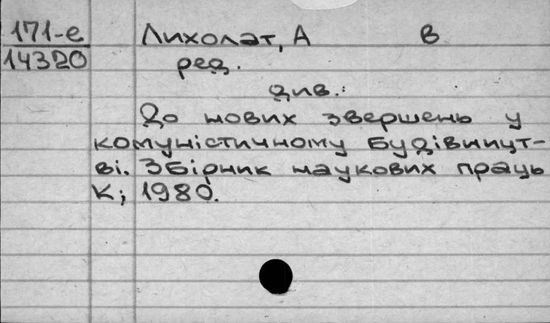 171-е Лихолат, А В
14320 ред.
див.:
До нових звершень у
комуністичному будівницт-
ві. Збірник наукових праць
К; 1980.